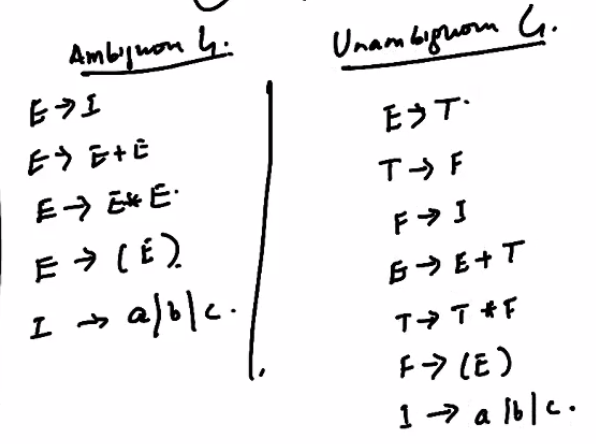 Ambiguous G.
E → I
E → E + E
E → E * E.
E → (E).
I → a|b|c.
Unambiguous G.
E → T.
T → F
F → I
E → E + T
T → T * F
F → (E)
I → a|b|c.